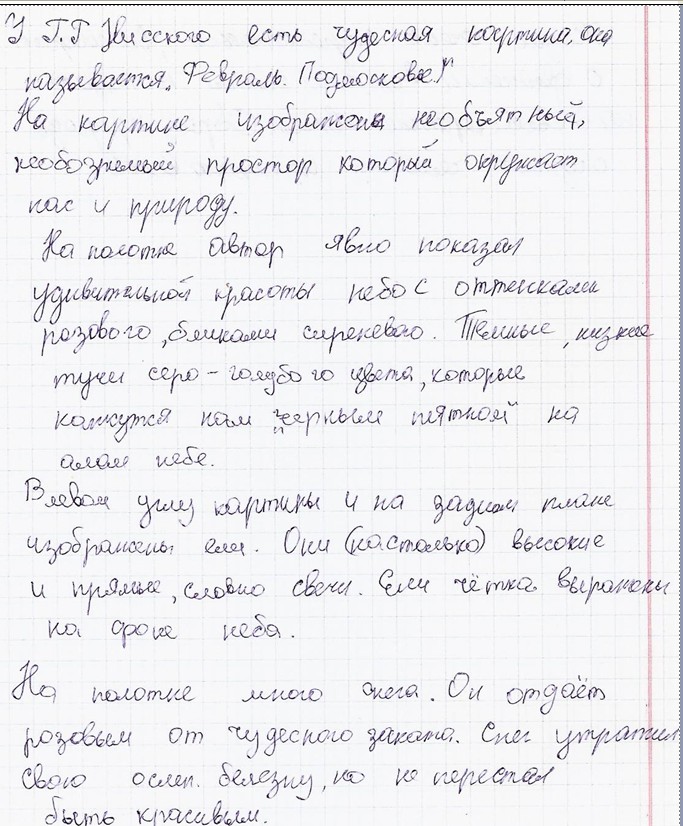 У Г.Г Нисского есть чудесная картина, она
называется „Февраль. Подмосковье."
На картине изображена необъятный,
необозримый простор который окружает
нас и природу.
На полотне автор явно показал
удивительной красоты небо с оттенками
розового, бликами сиреневого. Темные, низкие
тучи серо-голубого цвета, которые
кажутся нам „черным пятном" на
алом небе.
В левом углу картины и на заднем плане
изображены ели. Они (настолько) высокие
и прямые, словно свечи. Ели чётко выражены
на фоне неба.
На полотне много снега. Он отдаёт
розовым от чудесного заката. Снег утратил
свою ослеп. белезну, но не перестал
быть красивым.